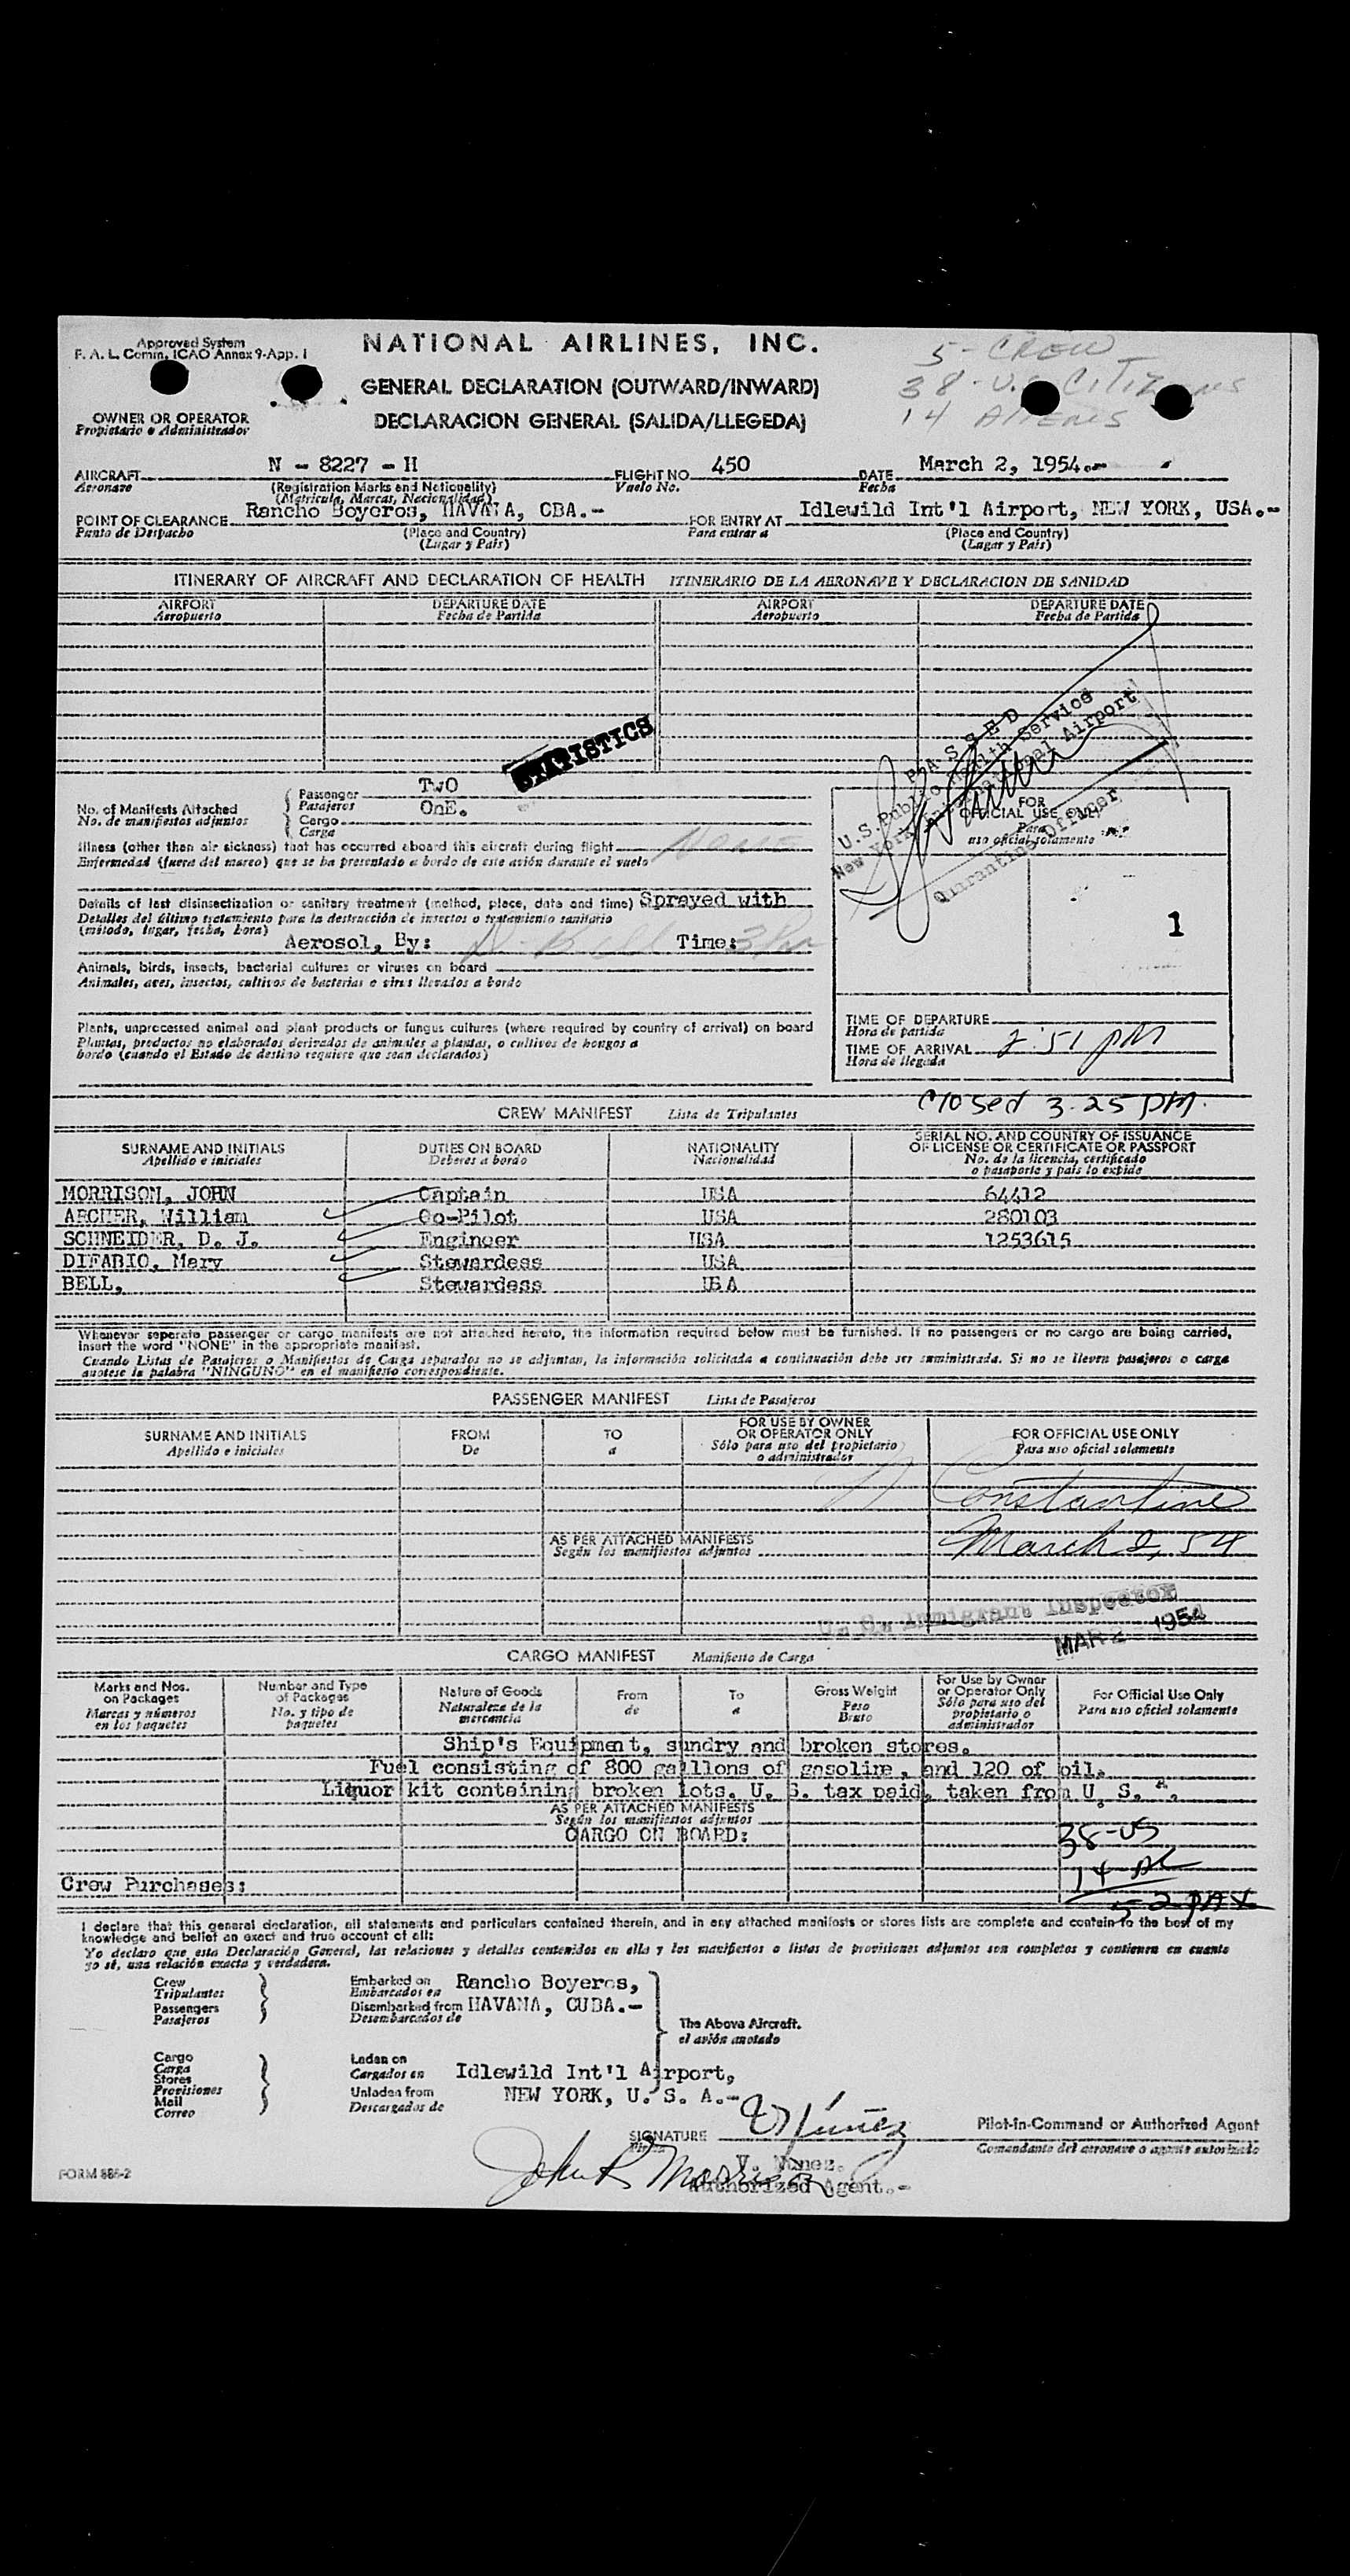 Approved System
F. A. L. Comin, ICAO Annex 9-App. 1
NATIONAL AIRLINES, INC.
5 - CREW
38 - U.S. CITIZENS
14 ALIENS
GENERAL DECLARATION (OUTWARD/INWARD)
DECLARACION GENERAL (SALIDA/LLEGEDA)
OWNER OR OPERATOR
Propietario o Administrador
AIRCRAFT N - 8227 - H FLIGHT NO. 450 DATE March 2, 1954.-
Aeronave (Registration Marks and Nationality) Vuelo No. Fecha
(Matricula, Marcas, Nacionalidad)
POINT OF CLEARANCE Rancho Boyeros, HAVANA, CBA.- FOR ENTRY AT Idlewild Int'l Airport, NEW YORK, USA.-
Punto de Despacho (Place and Country) Para entrar a (Place and Country)
(Lugar y País) (Lugar y País)
ITINERARY OF AIRCRAFT AND DECLARATION OF HEALTH ITINERARIO DE LA AERONAVE Y DECLARACION DE SANIDAD
AIRPORT DEPARTURE DATE AIRPORT DEPARTURE DATE
Aeropuerto Fecha de Partida Aeropuerto Fecha de Partida
STATISTICS
PASSED
U.S. Public Health Service
New York International Airport
Quarantine Officer
No. of Manifests Attached
No. de manifiestos adjuntos
Passenger TwO
Pasajeros
Cargo OnE.
Carga
Illness (other than air sickness) that has occurred aboard this aircraft during flight None
Enfermedad (fuera del mareo) que se ha presentado a bordo de este avión durante el vuelo
Details of last disinsectization or sanitary treatment (method, place, date and time) Sprayed with
Detalles del último tratamiento para la destrucción de insectos o tratamiento sanitario
(método, lugar, fecha, hora)
Aerosol, By: D. Bell Time: 3 PM
Animals, birds, insects, bacterial cultures or viruses on board
Animales, aves, insectos, cultivos de bacterias o virus llevados a bordo
Plants, unprocessed animal and plant products or fungus cultures (where required by country of arrival) on board
Plantas, productos no elaborados derivados de animales a plantas, o cultivos de hongos a
bordo (cuando el Estado de destino requiere que sean declarados)
FOR
OFFICIAL USE ONLY
Para
uso oficial solamente
1
TIME OF DEPARTURE
Hora de partida
TIME OF ARRIVAL 2:51 PM
Hora de llegada
Closed 3.25 PM.
CREW MANIFEST Lista de Tripulantes
SURNAME AND INITIALS DUTIES ON BOARD NATIONALITY SERIAL NO. AND COUNTRY OF ISSUANCE
OF LICENSE OR CERTIFICATE OR PASSPORT
Apellido e iniciales Deberes a bordo Nacionalidad No. de la licencia, certificado
o pasaporte y país lo expide
MORRISON, JOHN Captain USA 64412
ARCHER, William Co-Pilot USA 280103
SCHNEIDER, D. J. Engineer USA 1253615
DIFABIO, Mary Stewardess USA
BELL, Stewardess USA
Whenever separate passenger or cargo manifests are not attached hereto, the information required below must be furnished. If no passengers or no cargo are being carried,
insert the word "NONE" in the appropriate manifest.
Cuando Listas de Pasajeros o Manifiestos de Carga separados no se adjuntan, la información solicitada a continuación debe ser suministrada. Si no se lleven pasajeros o carga
anotese la palabra "NINGUNO" en el manifiesto correspondiente.
PASSENGER MANIFEST Lista de Pasajeros
SURNAME AND INITIALS FROM TO FOR USE BY OWNER
OR OPERATOR ONLY FOR OFFICIAL USE ONLY
Apellido e iniciales De a Sólo para uso del propietario
o administrador Para uso oficial solamente
Constantine
AS PER ATTACHED MANIFESTS
Según los manifiestos adjuntos
March 2, 54
U. S. Immigrant Inspector
MAR 2 1954
CARGO MANIFEST Manifiesto de Carga
Marks and Nos.
on Packages
Marcas y números
en los paquetes
Number and Type
of Packages
No. y tipo de
paquetes
Nature of Goods
Naturaleza de la
mercancia
From
de
To
a
Gross Weight
Peso
Bruto
For Use by Owner
or Operator Only
Sólo para uso del
propietario o
administrador
For Official Use Only
Para uso oficial solamente
Ship's Equipment, sundry and broken stores.
Fuel consisting of 800 gallons of gasoline, and 120 of oil.
Liquor kit containing broken lots. U. S. tax paid, taken from U. S. A.
AS PER ATTACHED MANIFESTS
Según los manifiestos adjuntos
CARGO ON BOARD:
38-US
14 AL
52 PAX
Crew Purchases:
I declare that this general declaration, all statements and particulars contained therein, and in any attached manifests or stores lists are complete and contain to the best of my
knowledge and belief an exact and true account of all:
Yo declaro que esta Declaración General, las relaciones y detalles contenidos en ella y los manifiestos o listas de provisiones adjuntos son completos y contienen en cuanto
yo sé, una relación exacta y verdadera.
Crew
Tripulantes
Passengers
Pasajeros
Embarked on Rancho Boyeros,
Embarcados en
Disembarked from HAVANA, CUBA.-
Desembarcados de
The Above Aircraft.
el avión anotado
Cargo
Carga
Stores
Provisiones
Mail
Correo
Laden on
Cargados en Idlewild Int'l Airport,
Unladen from NEW YORK, U. S. A.-
Descargados de
SIGNATURE V Núñez
Firma
Pilot-in-Command or Authorized Agent
Comandante del aeronave o agente autorizado
John R Morrison
V. Nunez.
Authorized Agent.-
FORM 886-2